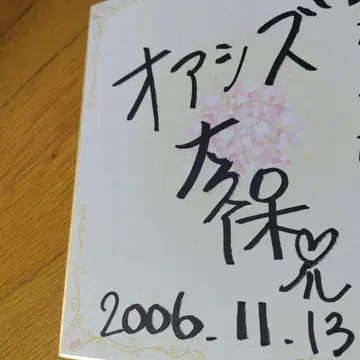 オアシズ
大久保♡ル
2006.11.13